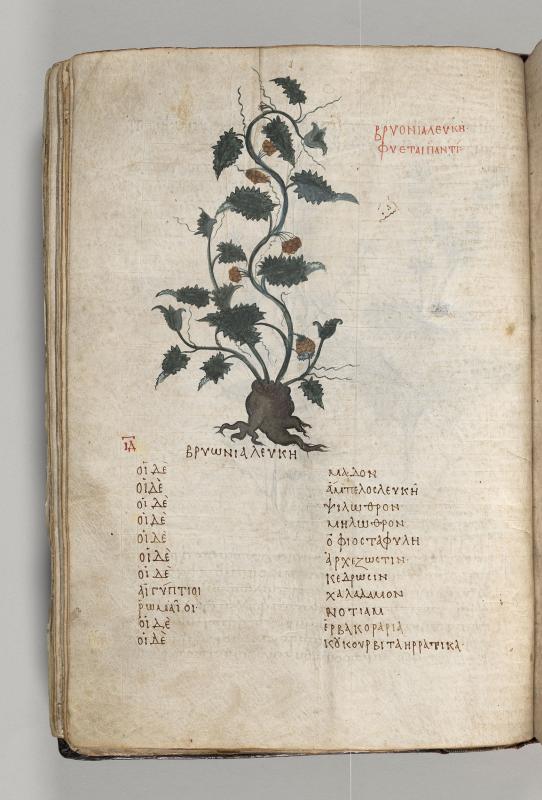 ΒΡΥΟΝΙΑΛΕΥΚΗ·
ΦΥΕΤΑΙΠΑΝΤΙ·
ΙΔ
ΒΡΥΩΝΙΑ ΛΕΥΚΗ
ὁι δὲ μαδον
ὁι δὲ ἄμπελοσλευκή
ὁι δὲ ψιλωθρον
ὁι δὲ μηλωθρον
ὁι δὲ ὀφιοσταφυλη
ὁι δὲ ἀρχεζωστιν·
ὁι δὲ κεδρωσιν
αἰγυπτιοι χαλαλαμον
ρωμαῖοι· νοτιαμ
ὁι δὲ ἑρβακοραρια
ὁι δὲ κȣκουρβιταηρρατικα·